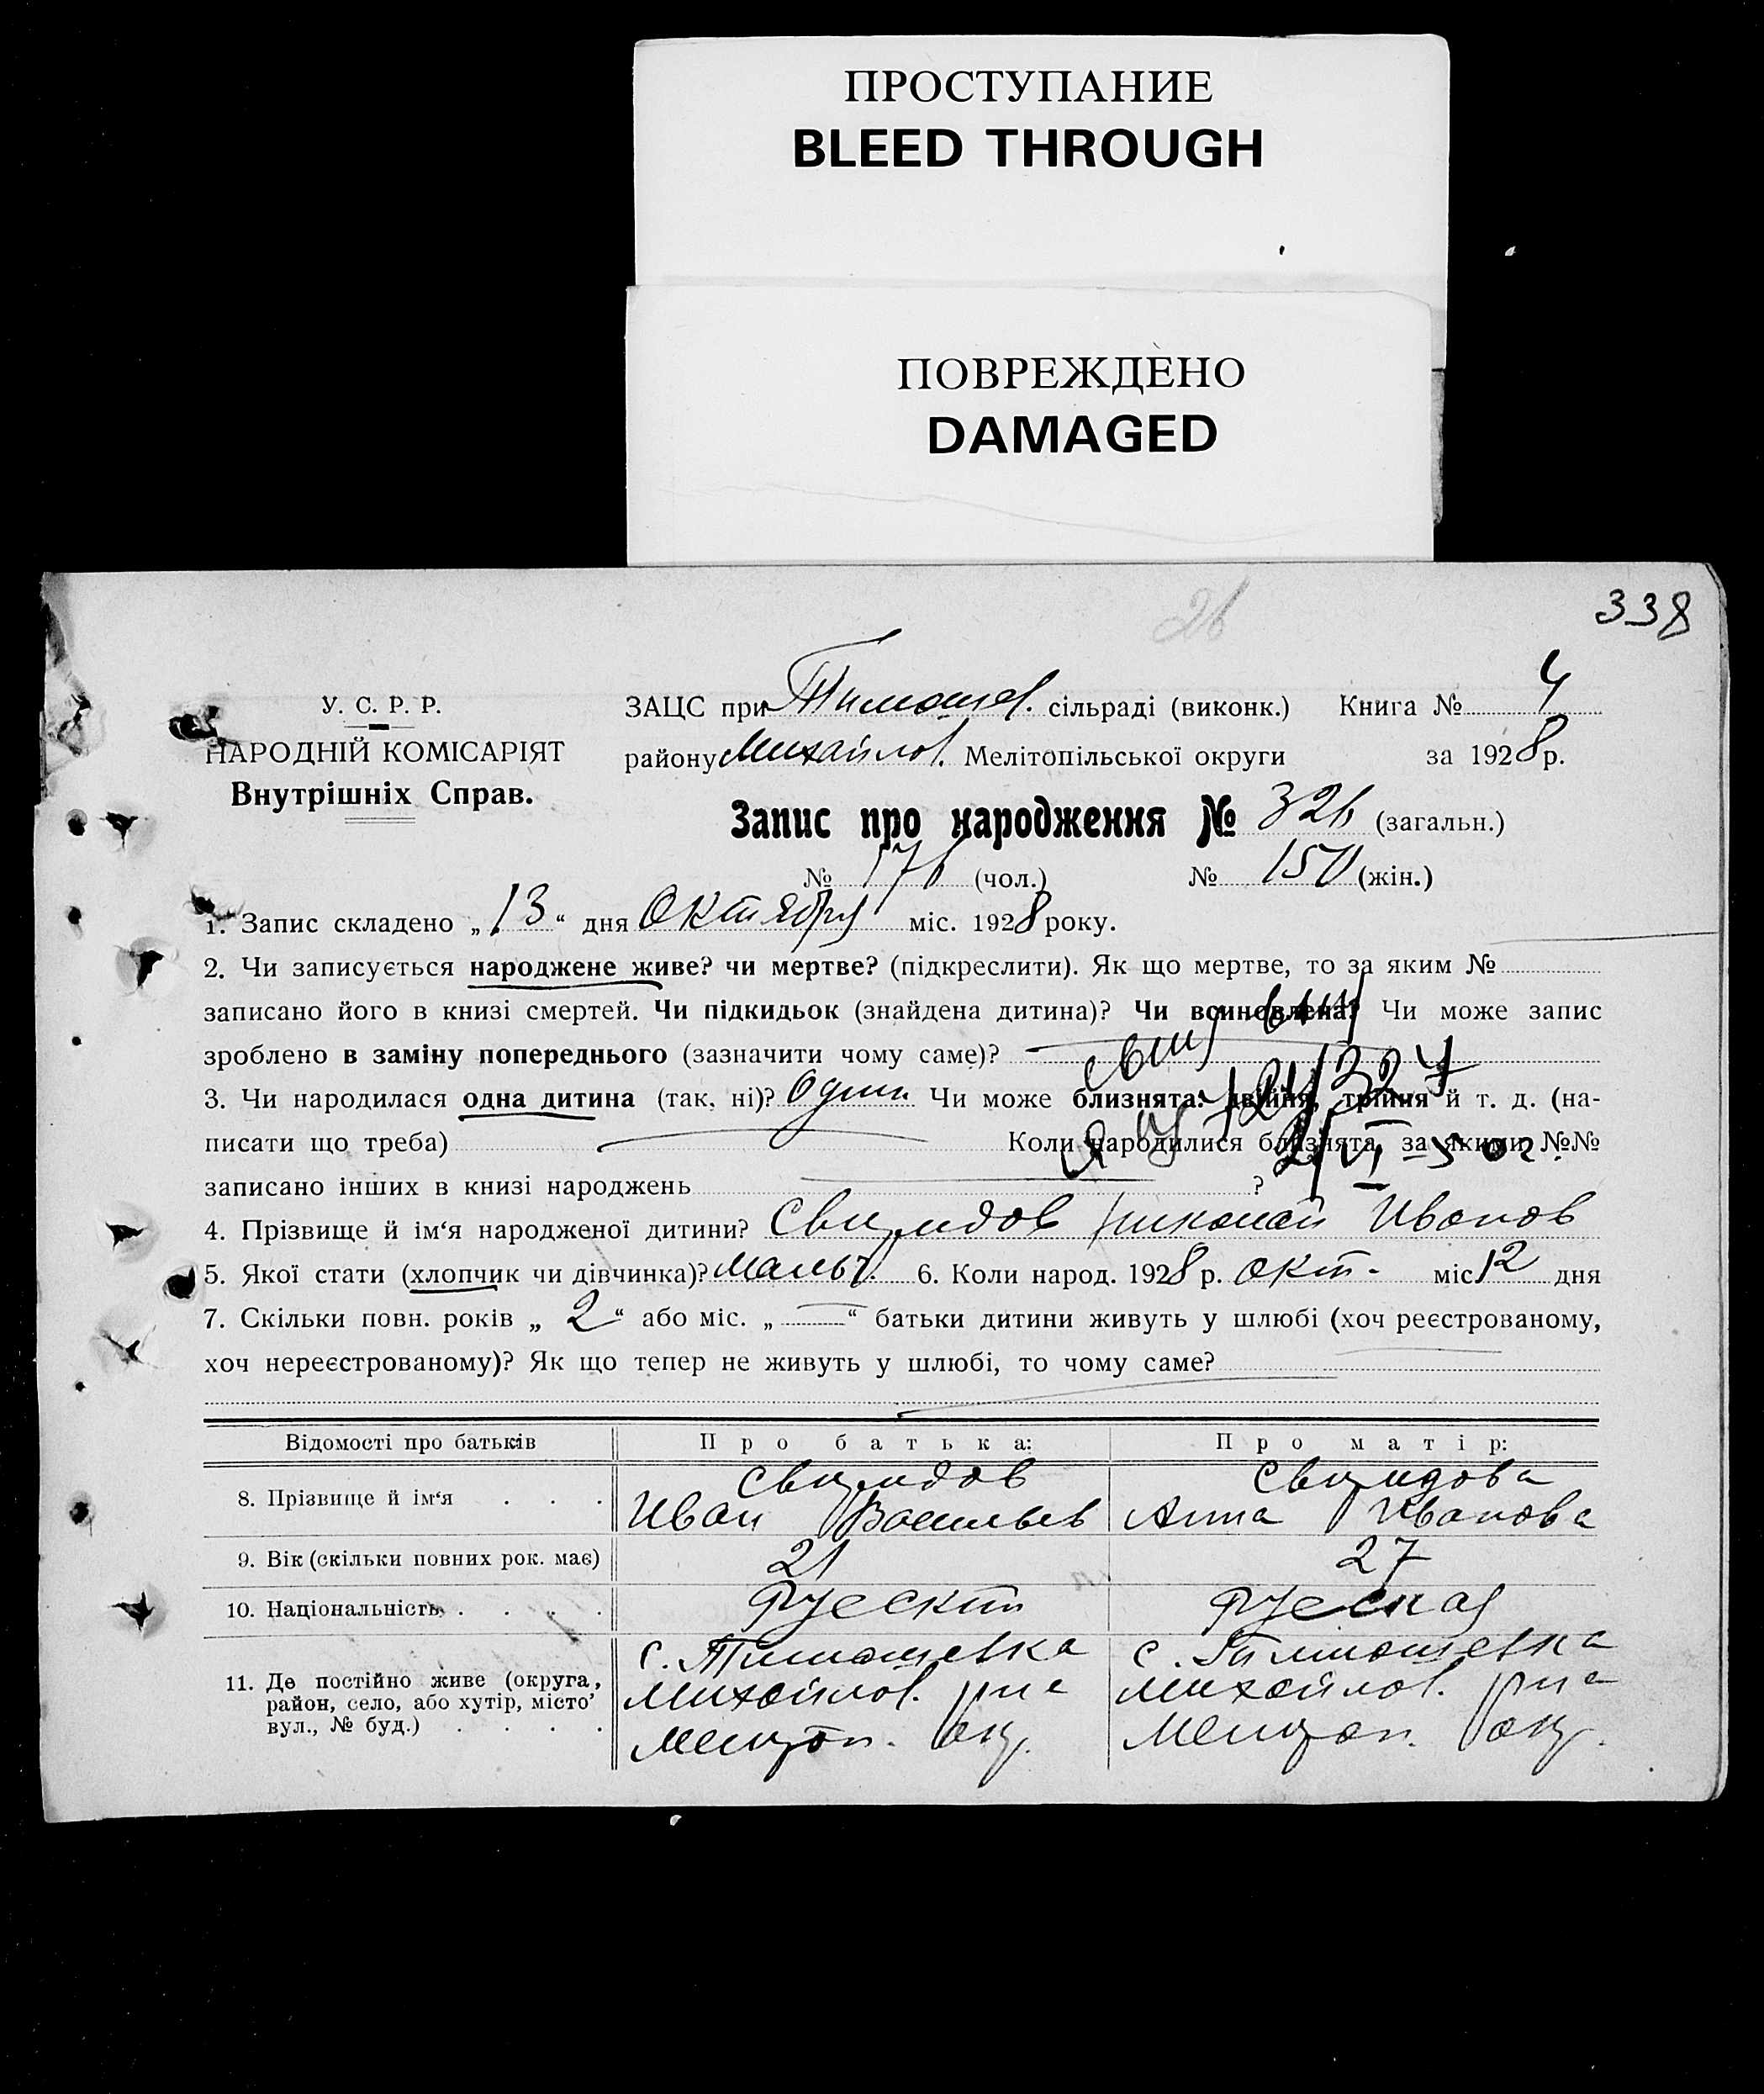 ПРОСТУПАНИЕ
BLEED THROUGH
ПОВРЕЖДЕНО
DAMAGED
338
26
У. С. Р. Р.
НАРОДНІЙ КОМІСАРІЯТ
Внутрішніх Справ.
ЗАЦС при Тимошев. сільраді (виконк.) Книга № 4
району Михайлов. Мелітопільської округи за 1928 р.
Запис про народження № 326 (загальн.)
№ 176 (чол.) № 150 (жін.)
1. Запис складено „13“ дня Октября міс. 1928 року.
2. Чи записується народжене живе? чи мертве? (підкреслити). Як що мертве, то за яким №
записано його в книзі смертей. Чи підкидьок (знайдена дитина)? Чи всиновлена? Чи може запис
зроблено в заміну попереднього (зазначити чому саме)? —
3. Чи народилася одна дитина (так, ні)? Один. Чи може близнята: двійня, трійня й т. д. (на-
писати що треба) Коли народилися близнята, за якими №№
записано інших в книзі народжень ?
4. Прізвище й ім‘я народженої дитини? Николай Иванов
5. Якої стати (хлопчик чи дівчинка)? Мальч. 6. Коли народ. 1928 р. Окт. міс 12 дня
7. Скільки повн. років „2“ або міс. „—“ батьки дитини живуть у шлюбі (хоч реєстрованому,
хоч нереєстрованому)? Як що тепер не живуть у шлюбі, то чому саме?
Відомості про батьків Про батька: Про матір:
8. Прізвище й ім‘я . . .
Иван Васильев Анна Иванова
9. Вік (скільки повних рок. має) 21 27
10. Національність . . . . Русский Русская
11. Де постійно живе (округа,
район, село, або хутір, місто,
вул., № буд.) . . . .
с. Тимошевка с. Тимошевка
Михайлов. р-на Михайлов. р-на
Мелитоп. окр. Мелитоп. окр.